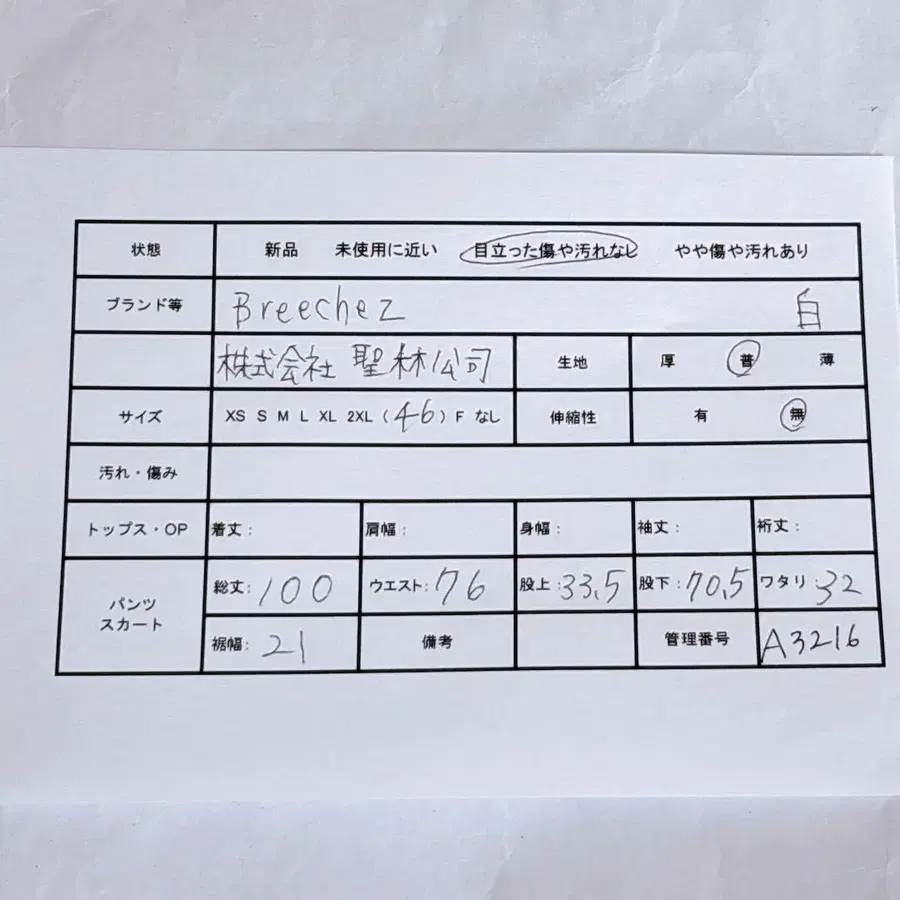 状態 新品 未使用に近い 目立った傷や汚れなし やや傷や汚れあり
ブランド等 Breechez 自
株式会社 聖林公司 生地 厚 普 薄
サイズ XS S M L XL 2XL (46) F なし 伸縮性 有 無
汚れ・傷み
トップス・OP 着丈: 肩幅: 身幅: 袖丈: 裄丈:
パンツ スカート 総丈:100 ウエスト:76 股上:33.5 股下:70.5 ワタリ:32
裾幅:21 備考 管理番号 A3216